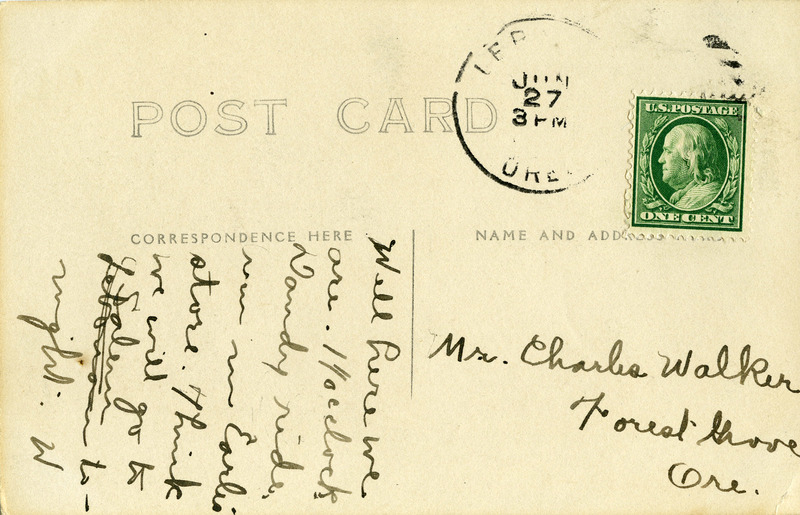 POST CARD
JUN
27
3 PM
ORE
U.S. POSTAGE
ONE CENT
CORRESPONDENCE HERE
NAME AND ADD
Well here we
are. 11 oclock
Dandy ride.
run in Earl's
store. think
we will
Salem go to
to-
night. W
Mr. Charles Walker
Forest Grove
Ore.